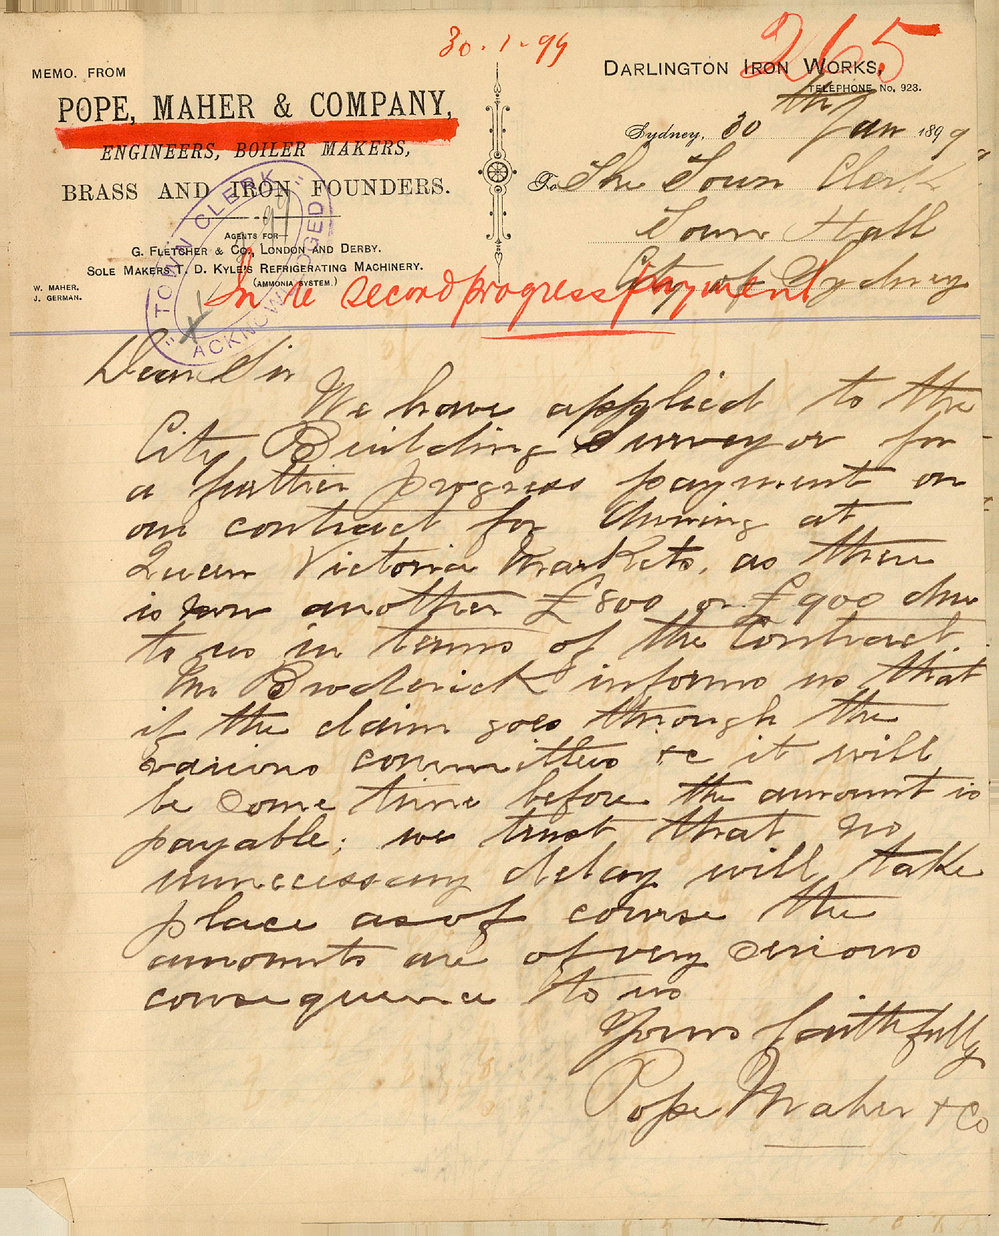 30.1.99
265
MEMO. FROM
POPE, MAHER & COMPANY,
ENGINEERS, BOILER MAKERS,
BRASS AND IRON FOUNDERS.
AGENTS FOR—
G. FLETCHER & CO., LONDON AND DERBY.
SOLE MAKERS T. D. KYLE'S REFRIGERATING MACHINERY.
(AMMONIA SYSTEM.)
W. MAHER.
J. GERMAN.
DARLINGTON IRON WORKS,
TELEPHONE No. 923.
Sydney, 30th Jan 1899
To The Town Clerk
Town Hall
City of Sydney
"TOWN CLERK"
ACKNOWLEDGED
In re second progress payment
Dear Sir
We have applied to the
City Building Surveyor for
a further progress payment on
our contract for shoring at
Queen Victoria Markets, as there
is now another £800 or £900 due
to us in terms of the Contract.
Mr Broderick informs us that
if the claim goes through the
various committees &c it will
be some time before the amount is
payable; we trust that no
unnecessary delay will take
place as of course the
amounts are of very serious
consequence to us
Yours faithfully
Pope Maher & Co